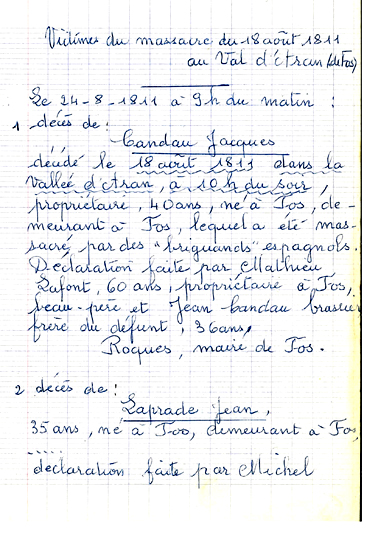 Victimes du massacre du 18 août 1811
au Val d'Aran (de Fos)
Le 24-8-1811 à 9h du matin :
1 décès de :
Candau Jacques
décédé le 18 août 1811 dans la
vallée d'Aran, à 10h du soir,
propriétaire, 40 ans, né à Fos, de-
meurant à Fos, lequel a été mas-
sacré par des "briguands" espagnols.
Déclaration faite par Mathieu
Lafont, 60 ans, propriétaire à Fos,
beau-père et Jean Candau
frère du défunt, 36 ans,
Roques, maire de Fos.
2 décès de :
Laprade Jean,
35 ans, né à Fos, demeurant à Fos,
déclaration faite par Michel